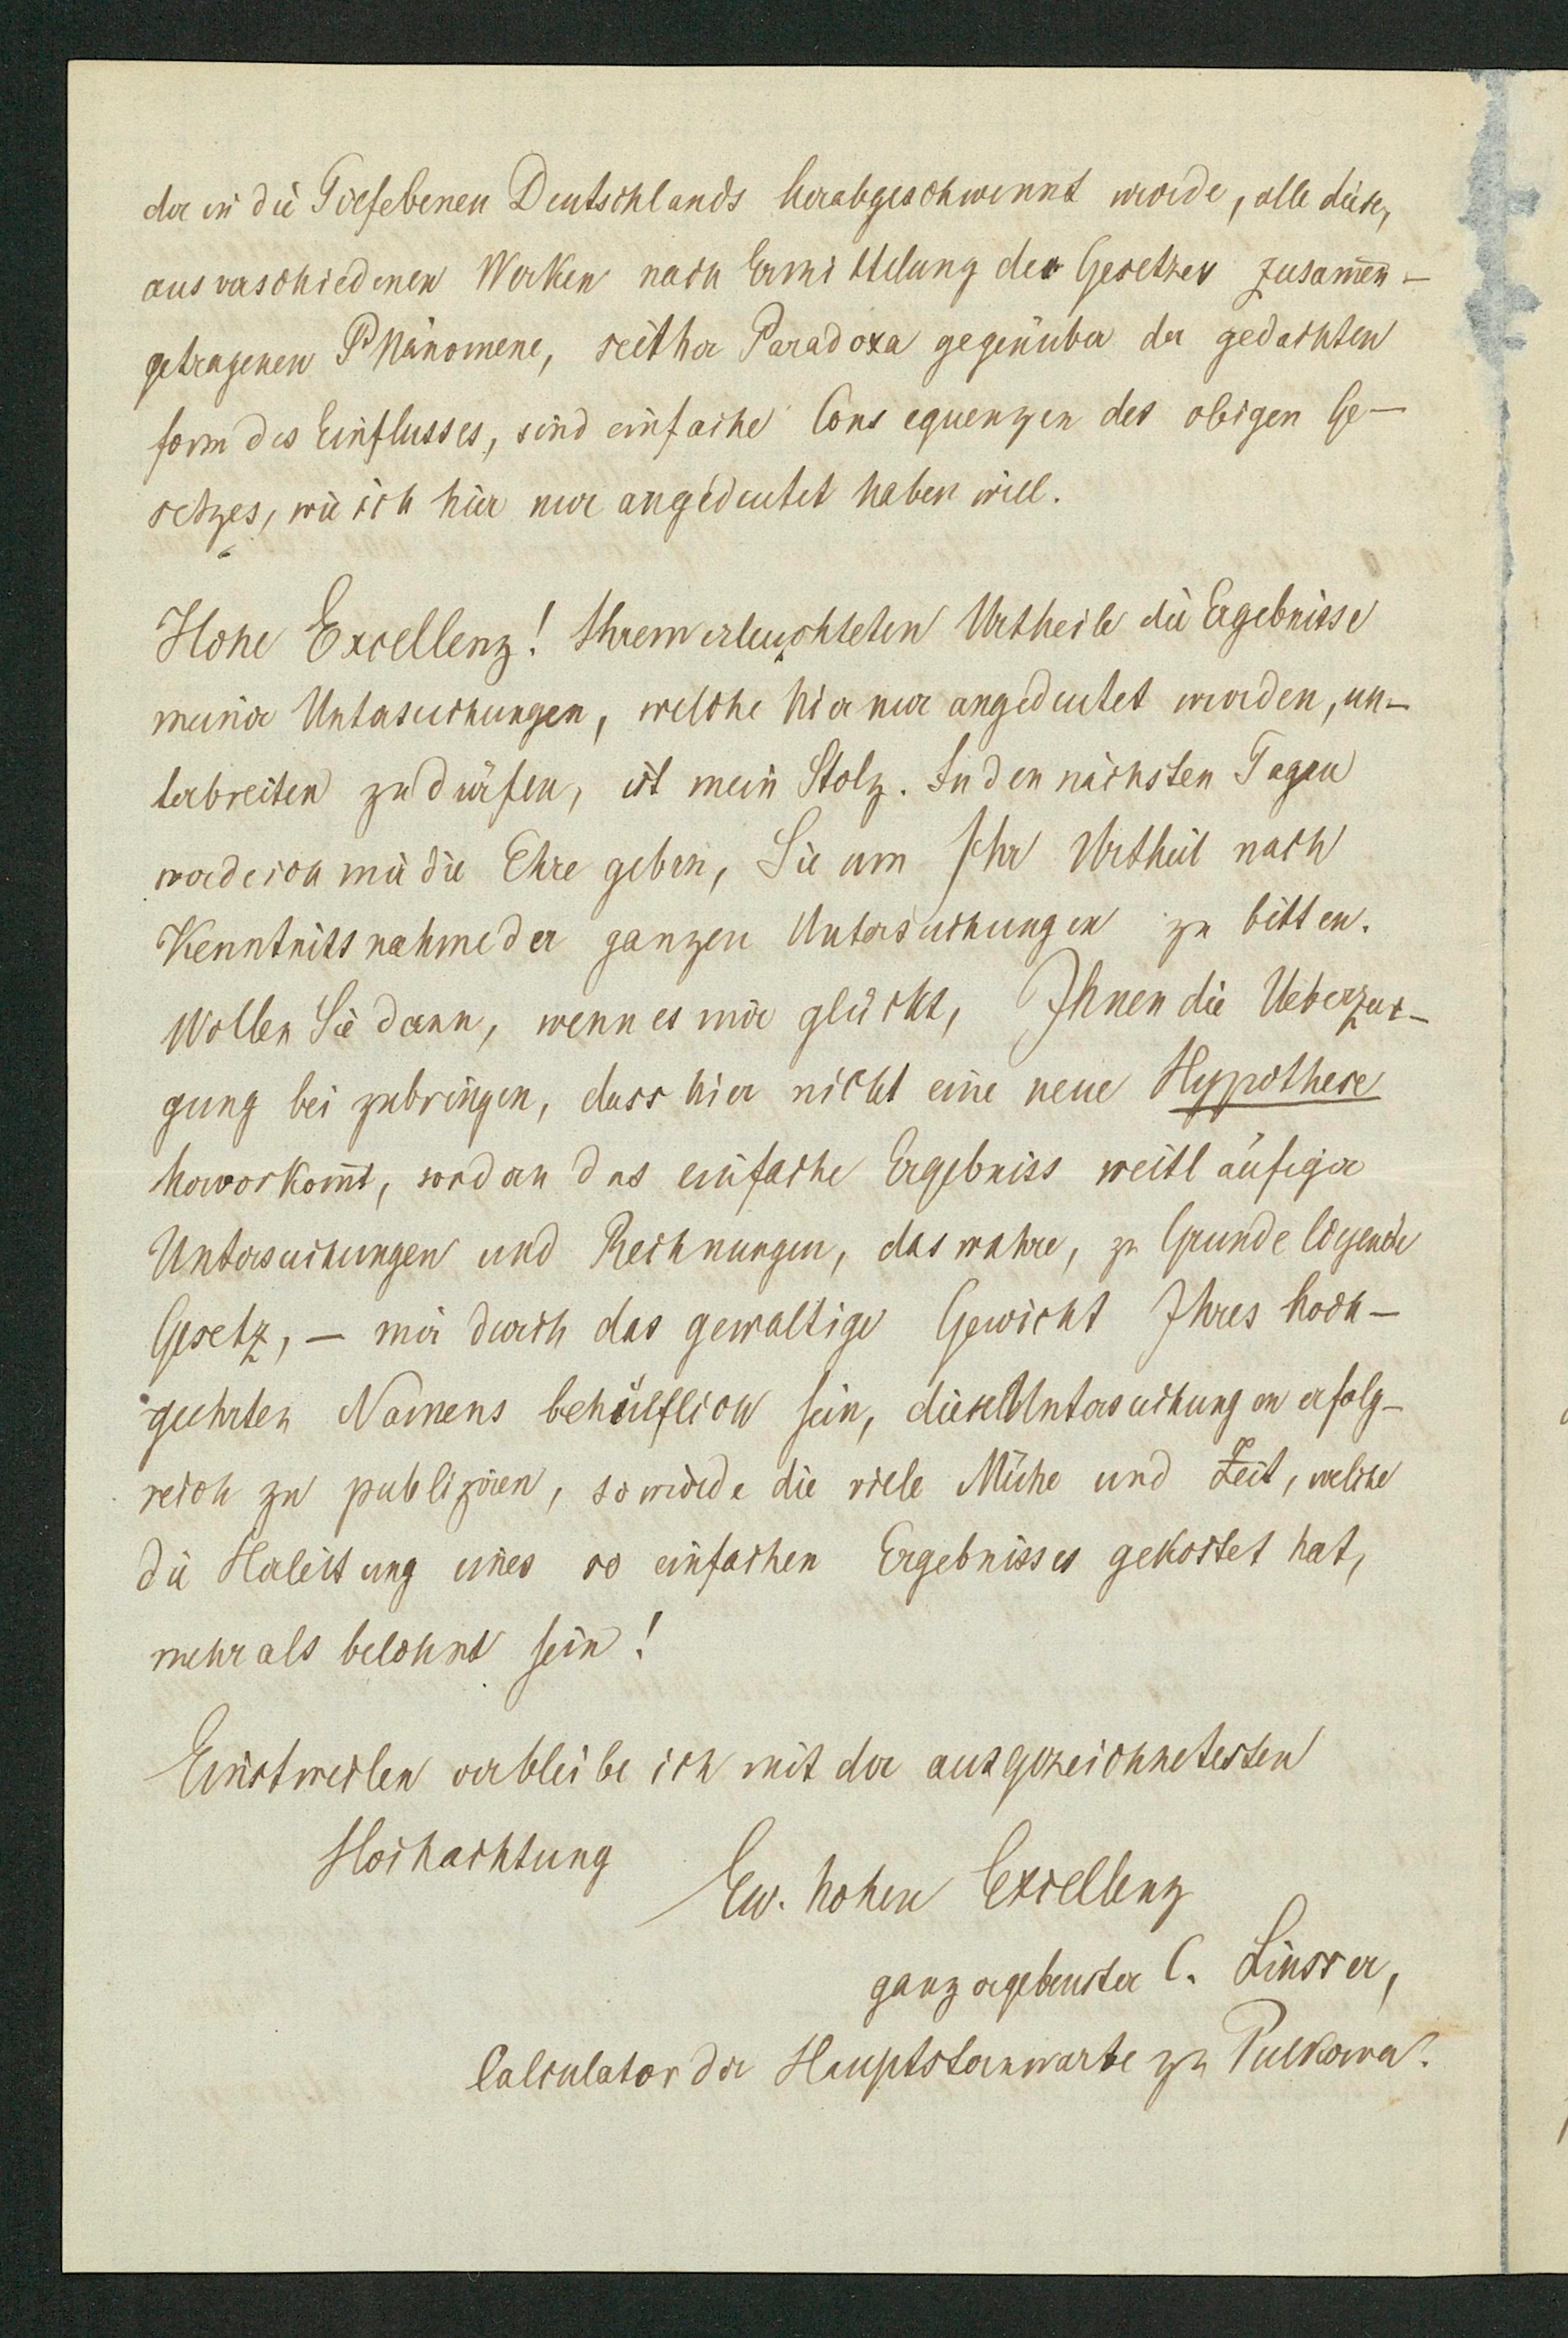 der in die Tiefebenen Deutschlands herabgeschwemmt wurde, alle diese,
aus verschiedenen Werken nach Ermittelung des Gesetzes zusam̅en-
getragenen Phänomene, seither Paradoxa gegenüber der gedachten
form des Einflusses, sind einfache Consequenzen des obigen Ge-
setzes, wie ich hier nur angedeutet haben will.
Hohe Excellenz! Ihrem erleuchteten Urtheile die Ergebnisse
meiner Untersuchungen, welche hier nur angedeutet wurden, un-
terbreiten zu dürfen, ist mein Stolz. In den nächsten Tagen
werde ich mir die Ehre geben, Sie um Ihr Urtheil nach
Kenntnissnahme der ganzen Untersuchungen zu bitten.
Wollen Sie dann, wenn es mir glückt, Ihnen die Ueberzeu-
gung beizubringen, dass hier nicht eine neue Hypothese
hervorkom̅t, sondern das einfache Ergebniss weitläufiger
Untersuchungen und Rechnungen, das wahre, zu Grunde liegende
Gesetz, – mir durch das gewaltige Gewicht Ihres hoch-
geehrten Namens behülflich sein, diese Untersuchungen erfolg-
reich zu publiziren, so würde die viele Mühe und Zeit, welche
die Herleitung eines so einfachen Ergebnisses gekostet hat,
mehr als belohnt sein!
Einstweilen verbleibe ich mit der ausgezeichnetesten
Hochachtung
Ew. hohen Excellenz
ganz ergebenster C. Linsser,
Calculator der Hauptsternwarte zu Pulkowa.